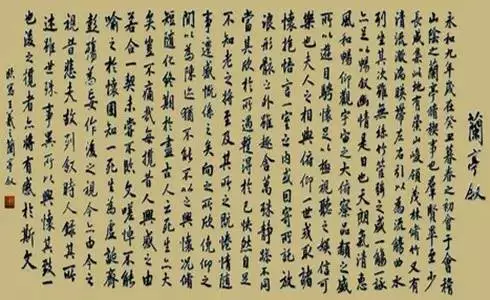 蘭亭叙
永和九年歲在癸丑暮春之初會于會稽
山陰之蘭亭脩稧事也羣賢畢至少
長咸集此地有崇山峻領茂林脩竹又有
清流激湍映帶左右引以為流觴曲水
列坐其次雖無絲竹管絃之盛一觴一詠
亦足以暢叙幽情是日也天朗氣清惠
風和暢仰觀宇宙之大俯察品類之盛
所以遊目騁懷足以極視聽之娛信可
樂也夫人之相與俯仰一世或取諸
懷抱悟言一室之內或因寄所託放
浪形骸之外雖趣舍萬殊靜躁不同
當其欣於所遇蹔得於己怏然自足
不知老之將至及其所之既惓情隨
事遷感慨係之矣向之所欣俛仰之
間以為陳迹猶不能不以之興懷況脩
短隨化終期於盡古人云死生亦大
矣豈不痛哉每攬昔人興感之由
若合一契未嘗不臨文嗟悼不能
喻之於懷固知一死生為虛誕齊
彭殤為妄作後之視今亦由今之
視昔悲夫故列叙時人錄其所
述雖世殊事異所以興懷其致一
也後之攬者亦將有感於斯文
王羲之蘭亭叙